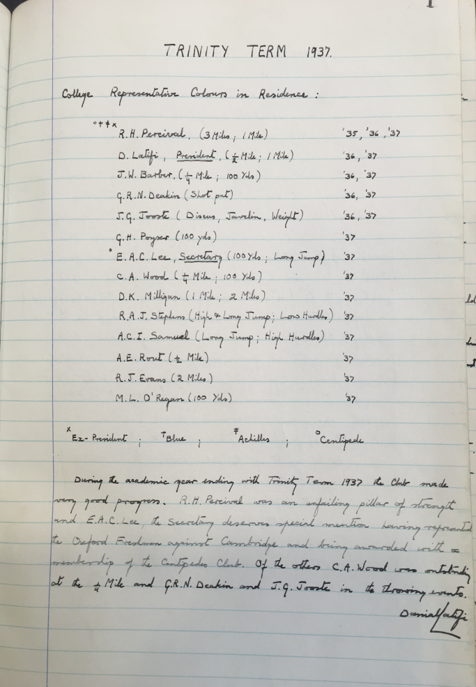 1
TRINITY TERM 1937.
College Representative Colours in Residence :
°†‡x R.H. Percival. (3 Miles ; 1 Mile) '35, '36, '37
D. Latifi, President. (½ Mile ; 1 Mile) '36, '37
J.W. Barber. (¼ Mile ; 100 Yds) '36, '37
G.R.N. Deakin (Shot put) '36, '37
J.G. Jooste (Discus, Javelin, Weight) '36, '37
G.H. Poyser (100 yds) '37
° E.A.C. Lee, Secretary (100 Yds ; Long Jump) '37
C.A. Wood (¼ Mile ; 100 Yds) '37
D.K. Milligan (1 Mile ; 2 Miles) '37
R.A.J. Stephens (High & Long Jump ; Low Hurdles) '37
A.C.I. Samuel (Long Jump ; High Hurdles) '37
A.E. Rout (½ Mile) '37
R.J. Evans (2 Miles) '37
M.L. O'Regan (100 Yds) '37
x Ex-President ; † Blue ; ‡ Achilles ; ° Centipede
During the academic year ending with Trinity Term 1937 the Club made
very good progress. R.H. Percival was an unfailing pillar of strength
and E.A.C. Lee, the Secretary deserves special mention having represented
the Oxford Freshmen against Cambridge and being awarded with a
membership of the Centipedes Club. Of the others C.A. Wood was outstanding
at the ¼ Mile and G.R.N. Deakin and J.G. Jooste in the throwing events.
Danial Latifi